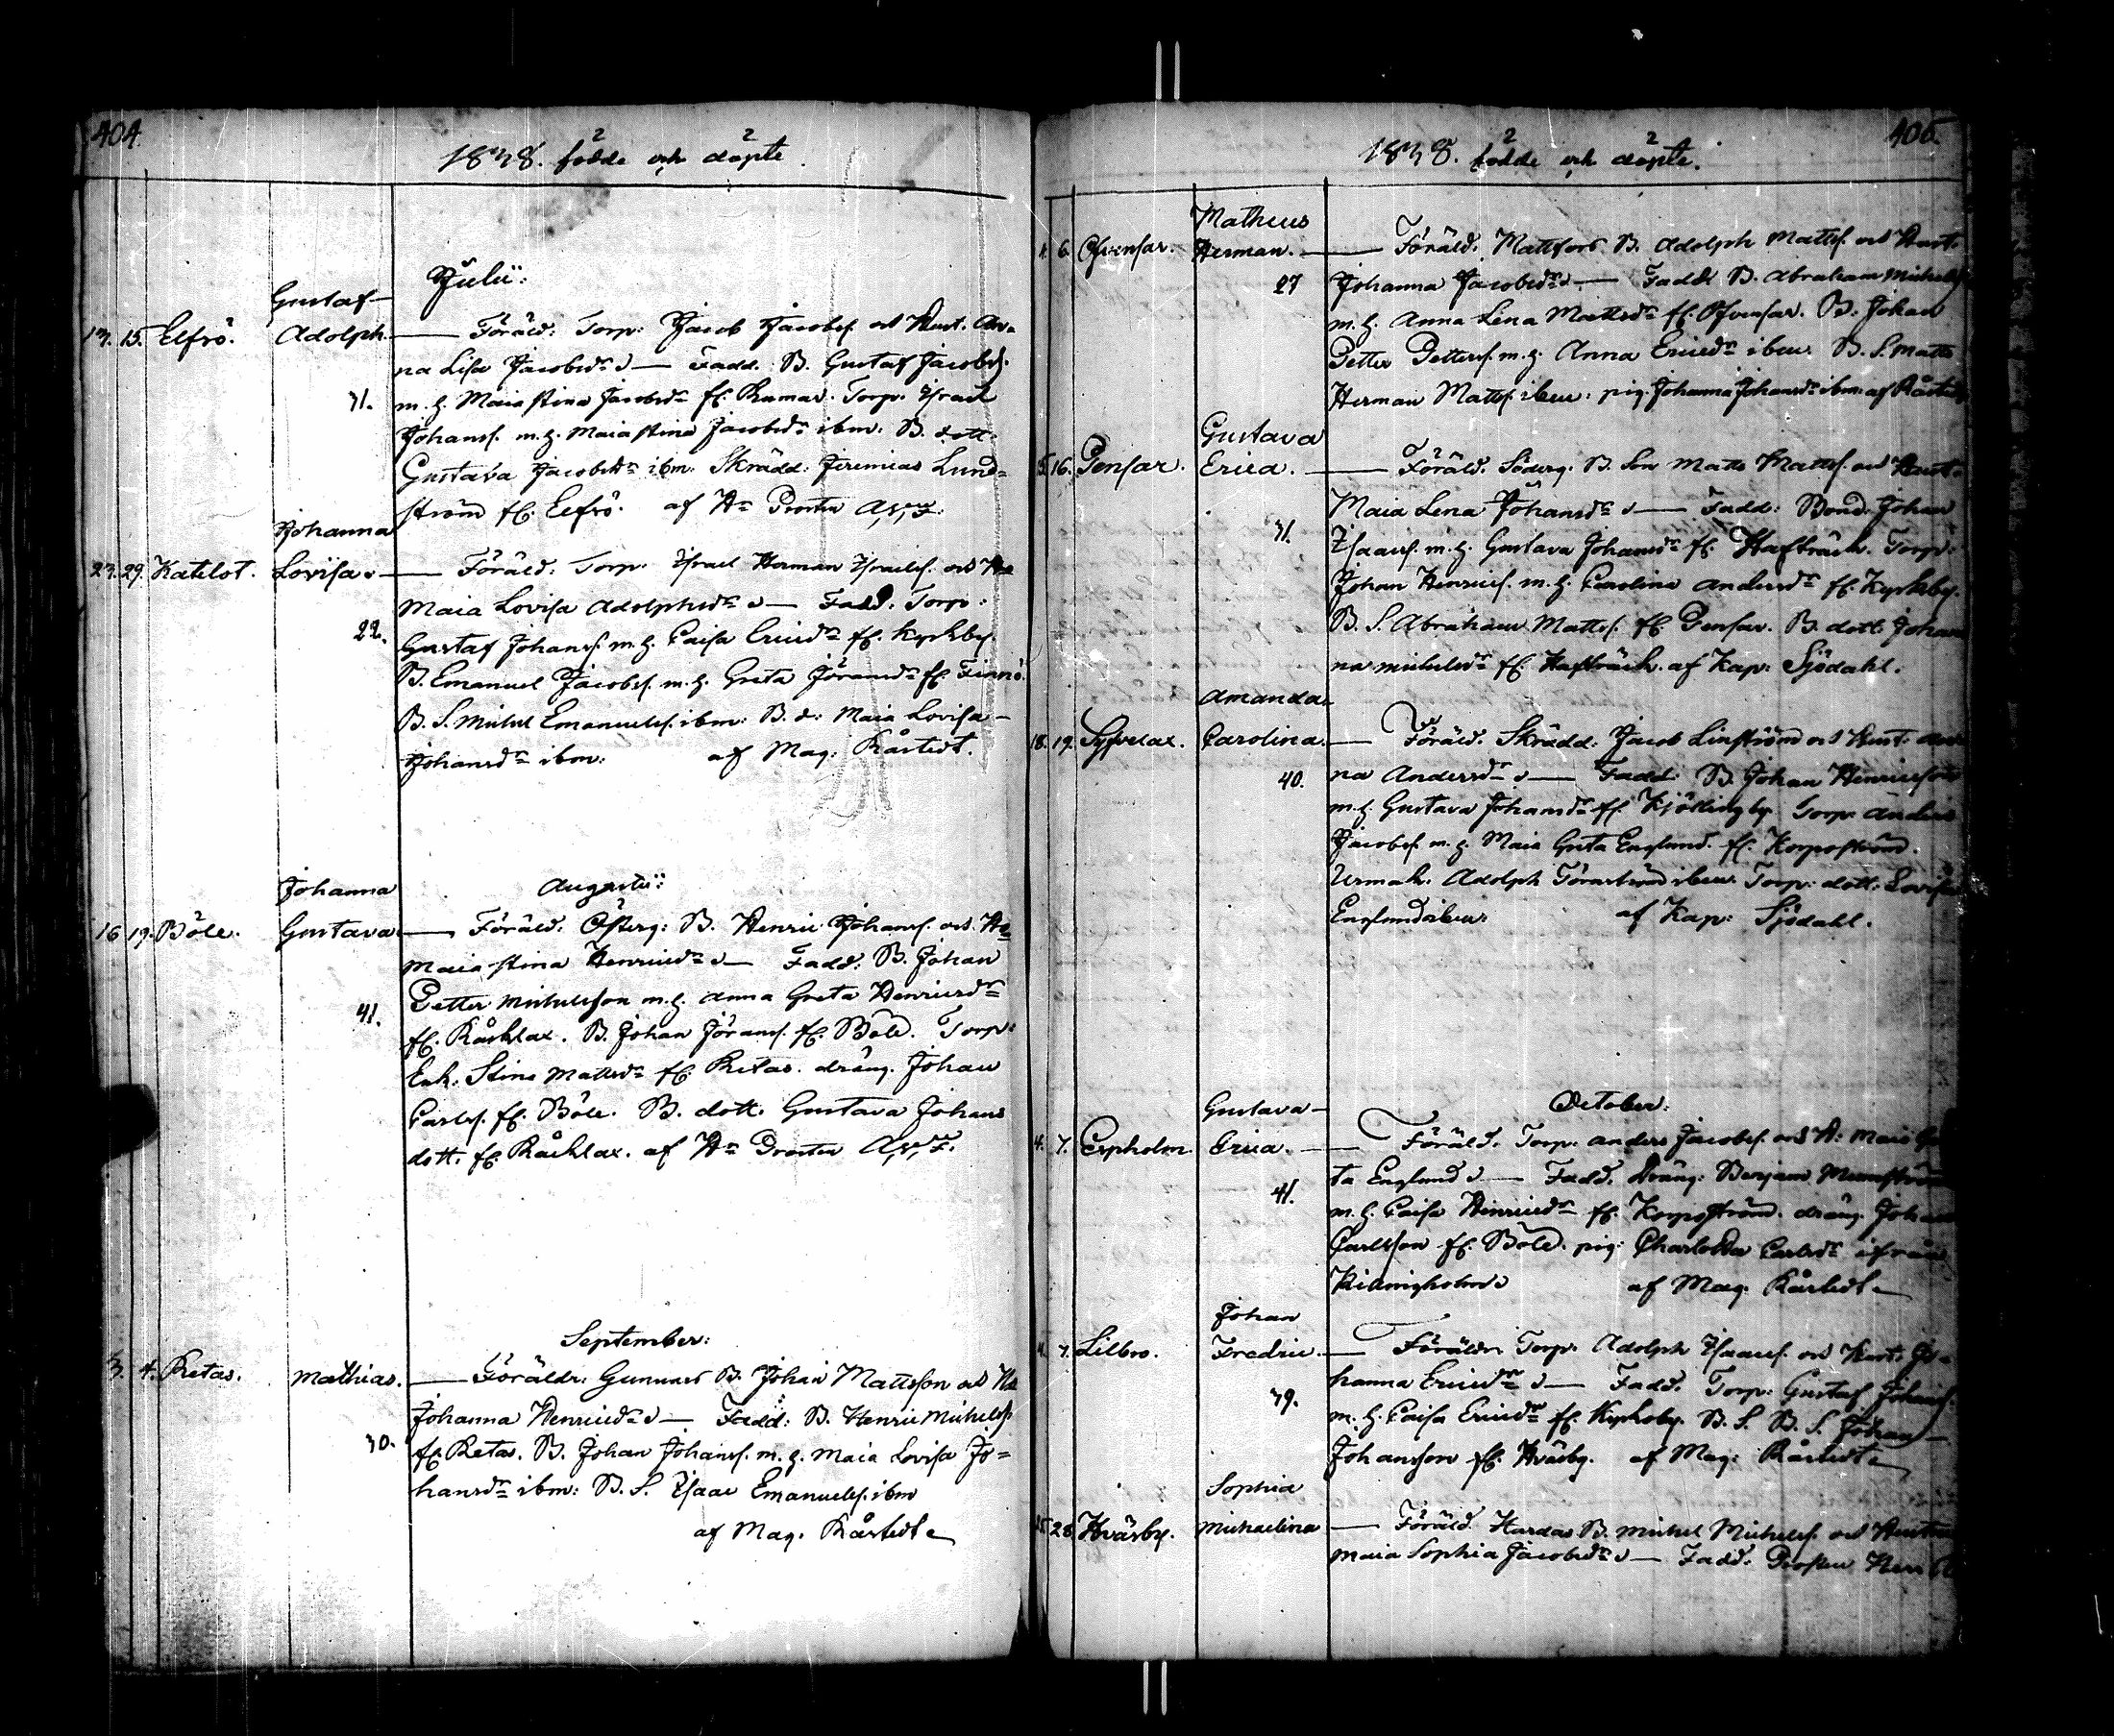 404.
1838. födde och döpte.
Julii:
Gustaf
13. 15. Elfsö. Adolph. — Föräld: Torp: Jacob Jacobss. och Hust. An=
na Lisa Jacobsdr — Fadd. B. Gustaf Jacobss.
31. m. h. Maia Stina Jacobsdr fr. Rumar. Torp. Israel
Johanss. m. h. Maia Stina Jacobsdr ibm. B. dott.
Gustava Jacobsdr ibm. Skrädd: Jeremias Lund=
ström fr. Elfsö. af Hr Prosten
Johanna
23. 29. Katelot. Lovisa. — Föräld: Torp. Israel Herman Israelss. och H
Maia Lovisa Adolphsdr — Fadd. Torp:
22. Gustaf Johanss. m. h. Caisa Ericsdr fr. Kyrkby.
B. Emanuel Jacobss. m. h. Greta Jöransdr fr. Finnö.
B. S. Michel Emanuelss. ibm: B. d: Maia Lovisa
Johansdr ibm: af Mag: Kårstedt.
Augusti:
Johanna
16 19. Böle. Gustava. — Föräld. Österg: B. Henric Johanss. och H
Maia Stina Henricsdr — Fadd: B. Johan
Petter Michelsson m. h. Anna Greta Henricsdr
41. fr. Råcklax. B. Johan Jöranss. fr. Böle. Torp:
Enk. Stina Mattsdr fr. Retas. dräng. Johan
Carlss. fr. Böle. B. dott. Gustava Johans
dott. fr. Råcklax. af Hr Prosten
September:
3. 4. Retas. Mathias. — Föräldr: Gunnars B. Johan Mattsson och H
Johanna Henricsdr — Fadd: B. Henric Michelss.
30. fr. Retas. B. Johan Johanss. m. h. Maia Lovisa Jo=
hansdr ibm: B. S. Isaac Emanuelss. ibm
af Mag. Kårstedt
405.
1838. födde och döpte.
Matheus
6. Ofvensar. Herman. — Föräld. Mattfors B. Adolph Mattss. och Hust.
27 Johanna Jacobsdr — Fadd. B. Abraham Michelss.
m. h. Anna Lena Mattsdr fr. Ofvensar. B. Johan
Petter Petterss. m. h. Anna Ericsdr ibm. B. S. Matts
Herman Mattss. ibm: pig. Johanna Johansdr ibm. af Kårstedt
Gustava
15. 16. Pensar. Erica. — Föräld. Söderg. B. Son Matts Mattss. och Hust.
Maia Lena Johansdr — Fadd: Bond. Johan
31. Isaacss. m. h. Gustava Johansdr fr. Hafträsk. Torp:
Johan Henricss. m. h. Carolina Andersdr fr. Kyrkby.
B. S. Abraham Mattss. fr. Pensar. B. dott. Johan
na Michelsdr fr. Hafträsk. af Kap: Sjödahl.
Amanda
18. 19. Syvelax. Carolina. — Föräld. Skrädd: Jacob Linström och Hust.
na Andersdr — Fadd. B. Johan Henricsson
40. m. h. Gustava Johansdr fr. Kjöllingby Torp. Anders
Jacobss. m. h. Maia Greta Englund. fr. Korpoström.
Urmak. Adolph Törnström ibm. Torp: dott. Lovisa
Englund ibm. af Kap: Sjödahl.
October:
Gustava
4. 7. Espholm. Erica. — Föräld. Torp. Anders Jacobss. och H: Maia Gre
ta Englund — Fadd. dräng: Benjam
41. m. h. Caisa Henricsdr fr. Korpoström. dräng. Johan
Carlsson fr. Böle. pig: Charlotta Carlsdr ifrån
af Mag. Kårstedt
Johan
4. 7. Lilbro. Fredric. — Föräldr Torp. Adolph Isaacss. och Hust. Jo=
hanna Ericsdr — Fadd. Torp: Gustaf Johanss.
39. m. h. Caisa Ericsdr fr. Kyrkoby. B. S. B. S. Johan
Johansson fr. Hväsby. af Mag: Kårstedt
Sophia
28 Hväsby. Michaelina — Föräld. Hardas B. Michel Michelss. och Hustru
Maia Sophia Jacobsdr — Fadd. Prosten Herr